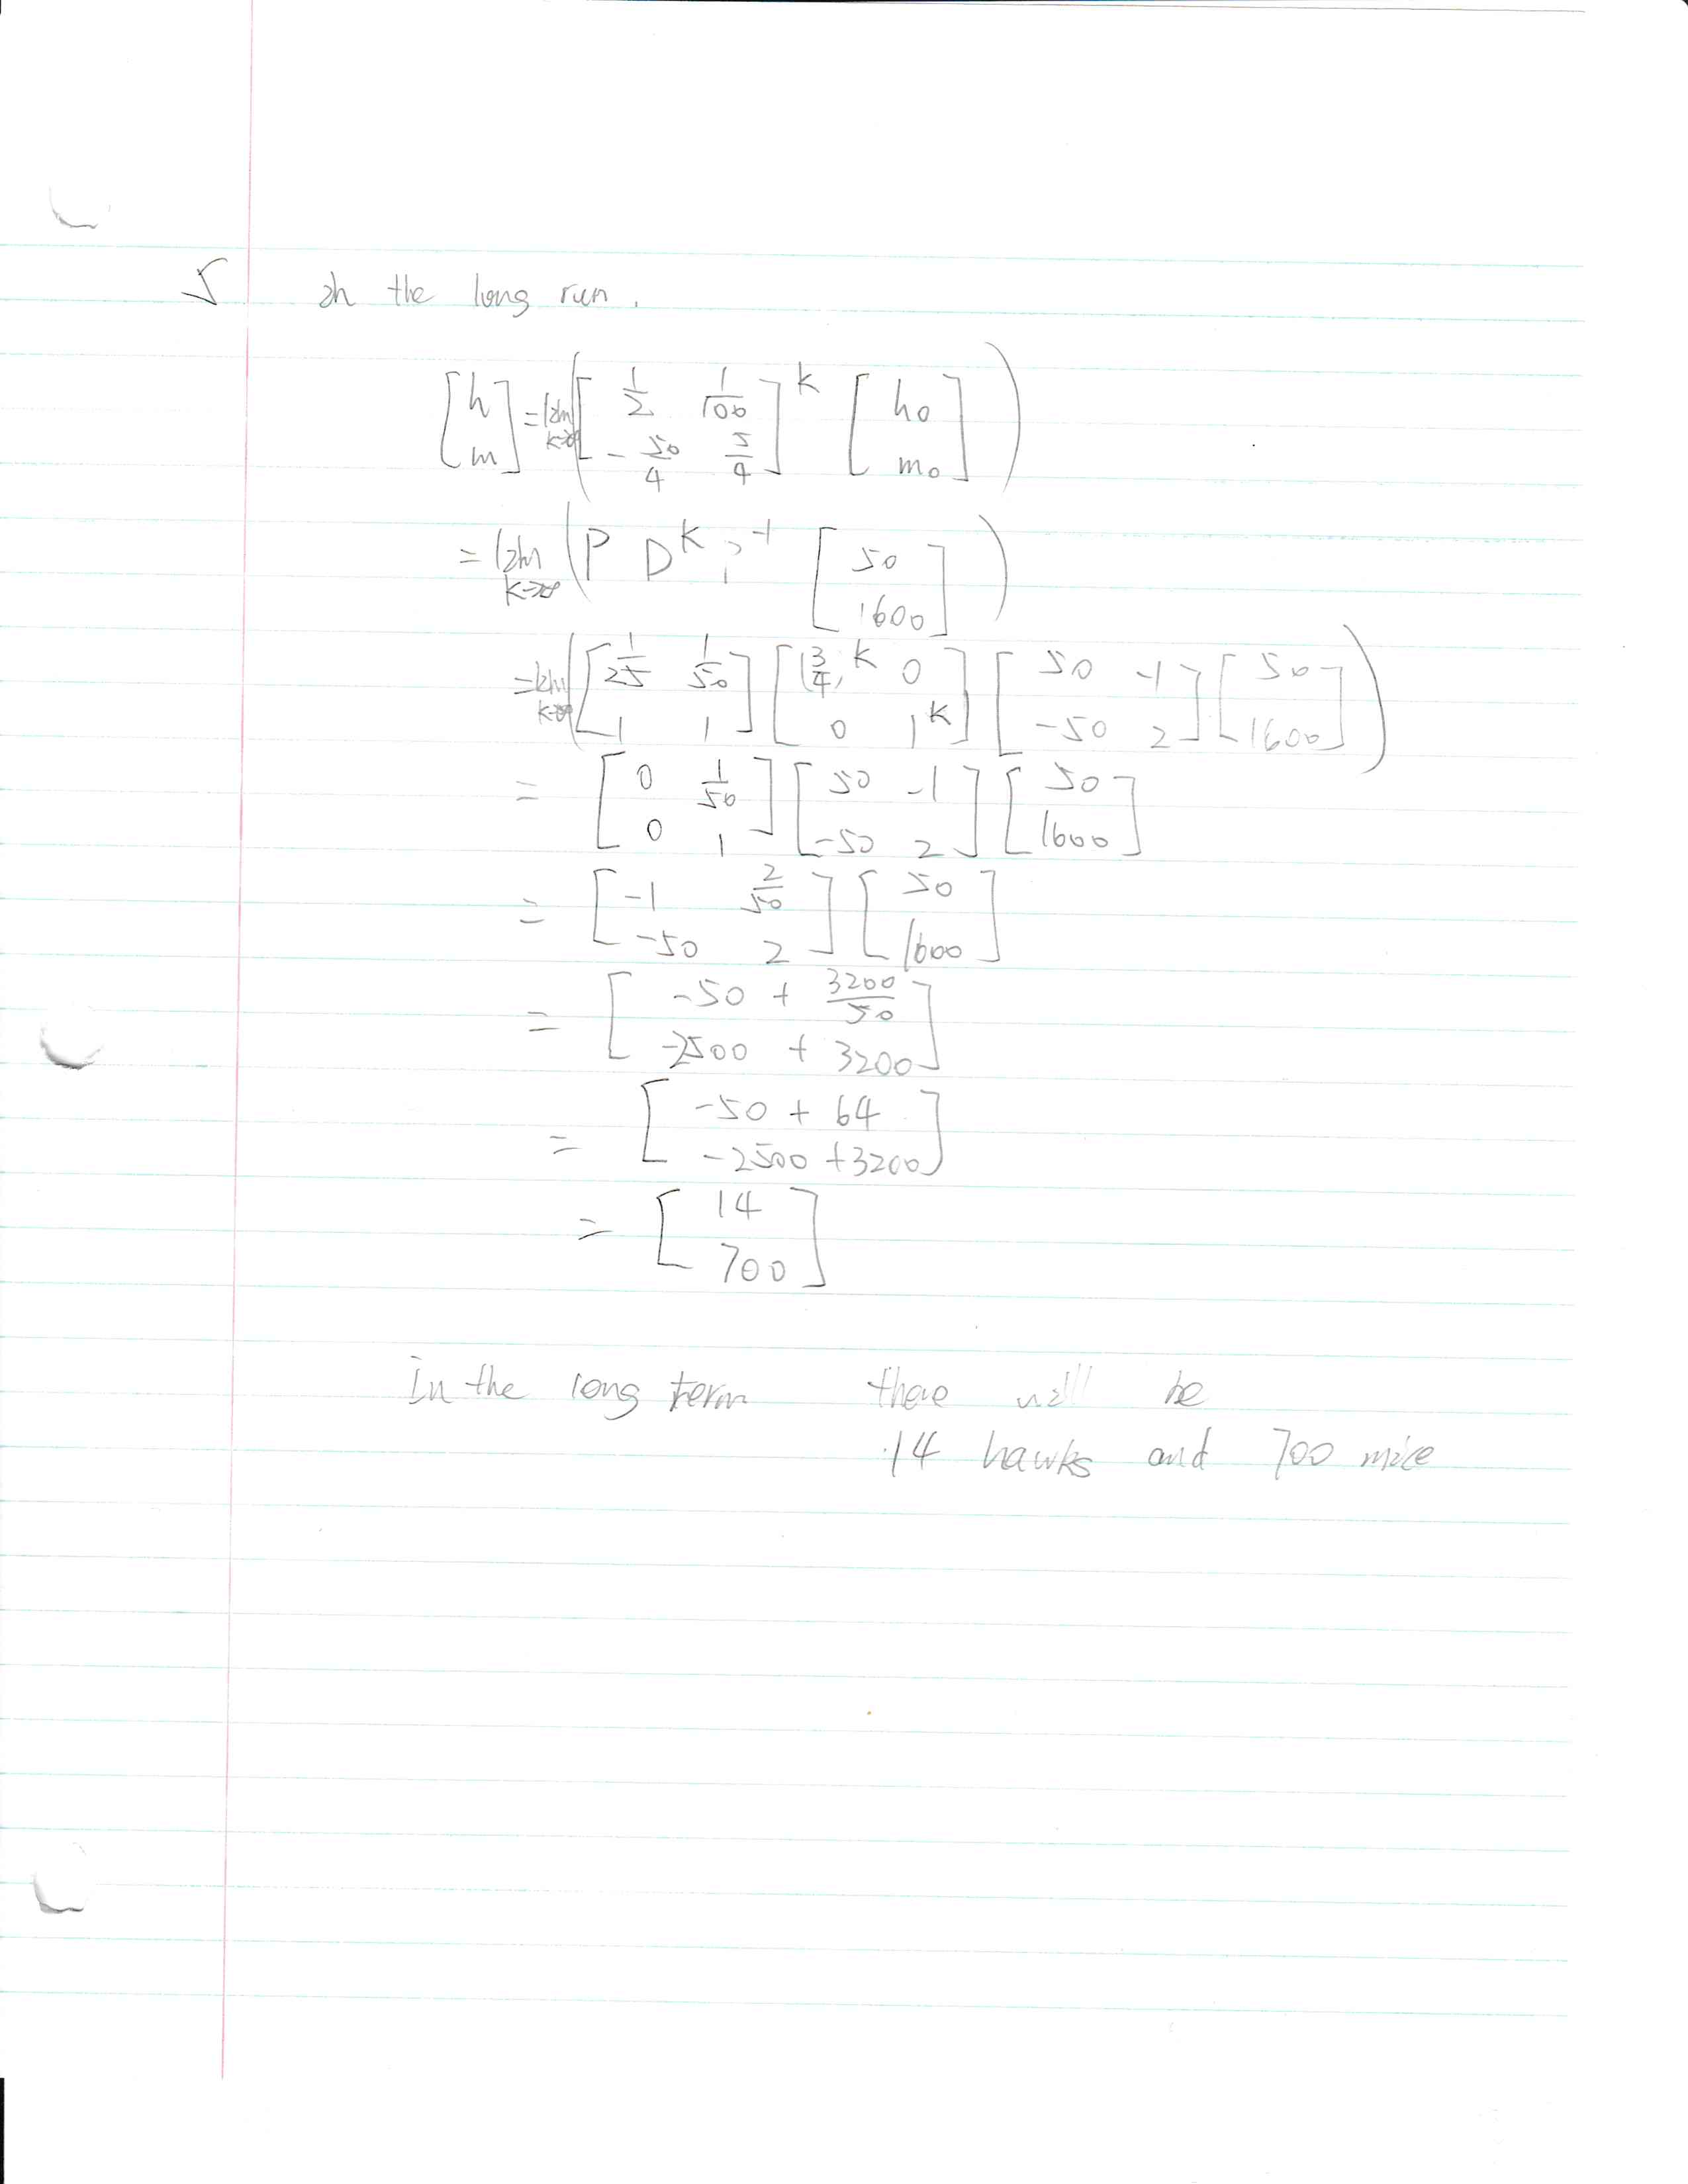 5 In the long run.
[h; m] = lim k→∞ ([1/2 1/100; -50/4 5/4]^k [h0; m0])
= lim k→∞ (P D^k P^-1 [50; 1600])
= lim k→∞ ([1/25 1/50; 1 1] [(3/4)^k 0; 0 1^k] [50 -1; -50 2] [50; 1600])
= [0 1/50; 0 1] [50 -1; -50 2] [50; 1600]
= [-1 2/50; -50 2] [50; 1600]
= [-50 + 3200/50; -2500 + 3200]
= [-50 + 64; -2500 + 3200]
= [14; 700]
In the long term there will be
14 hawks and 700 mice